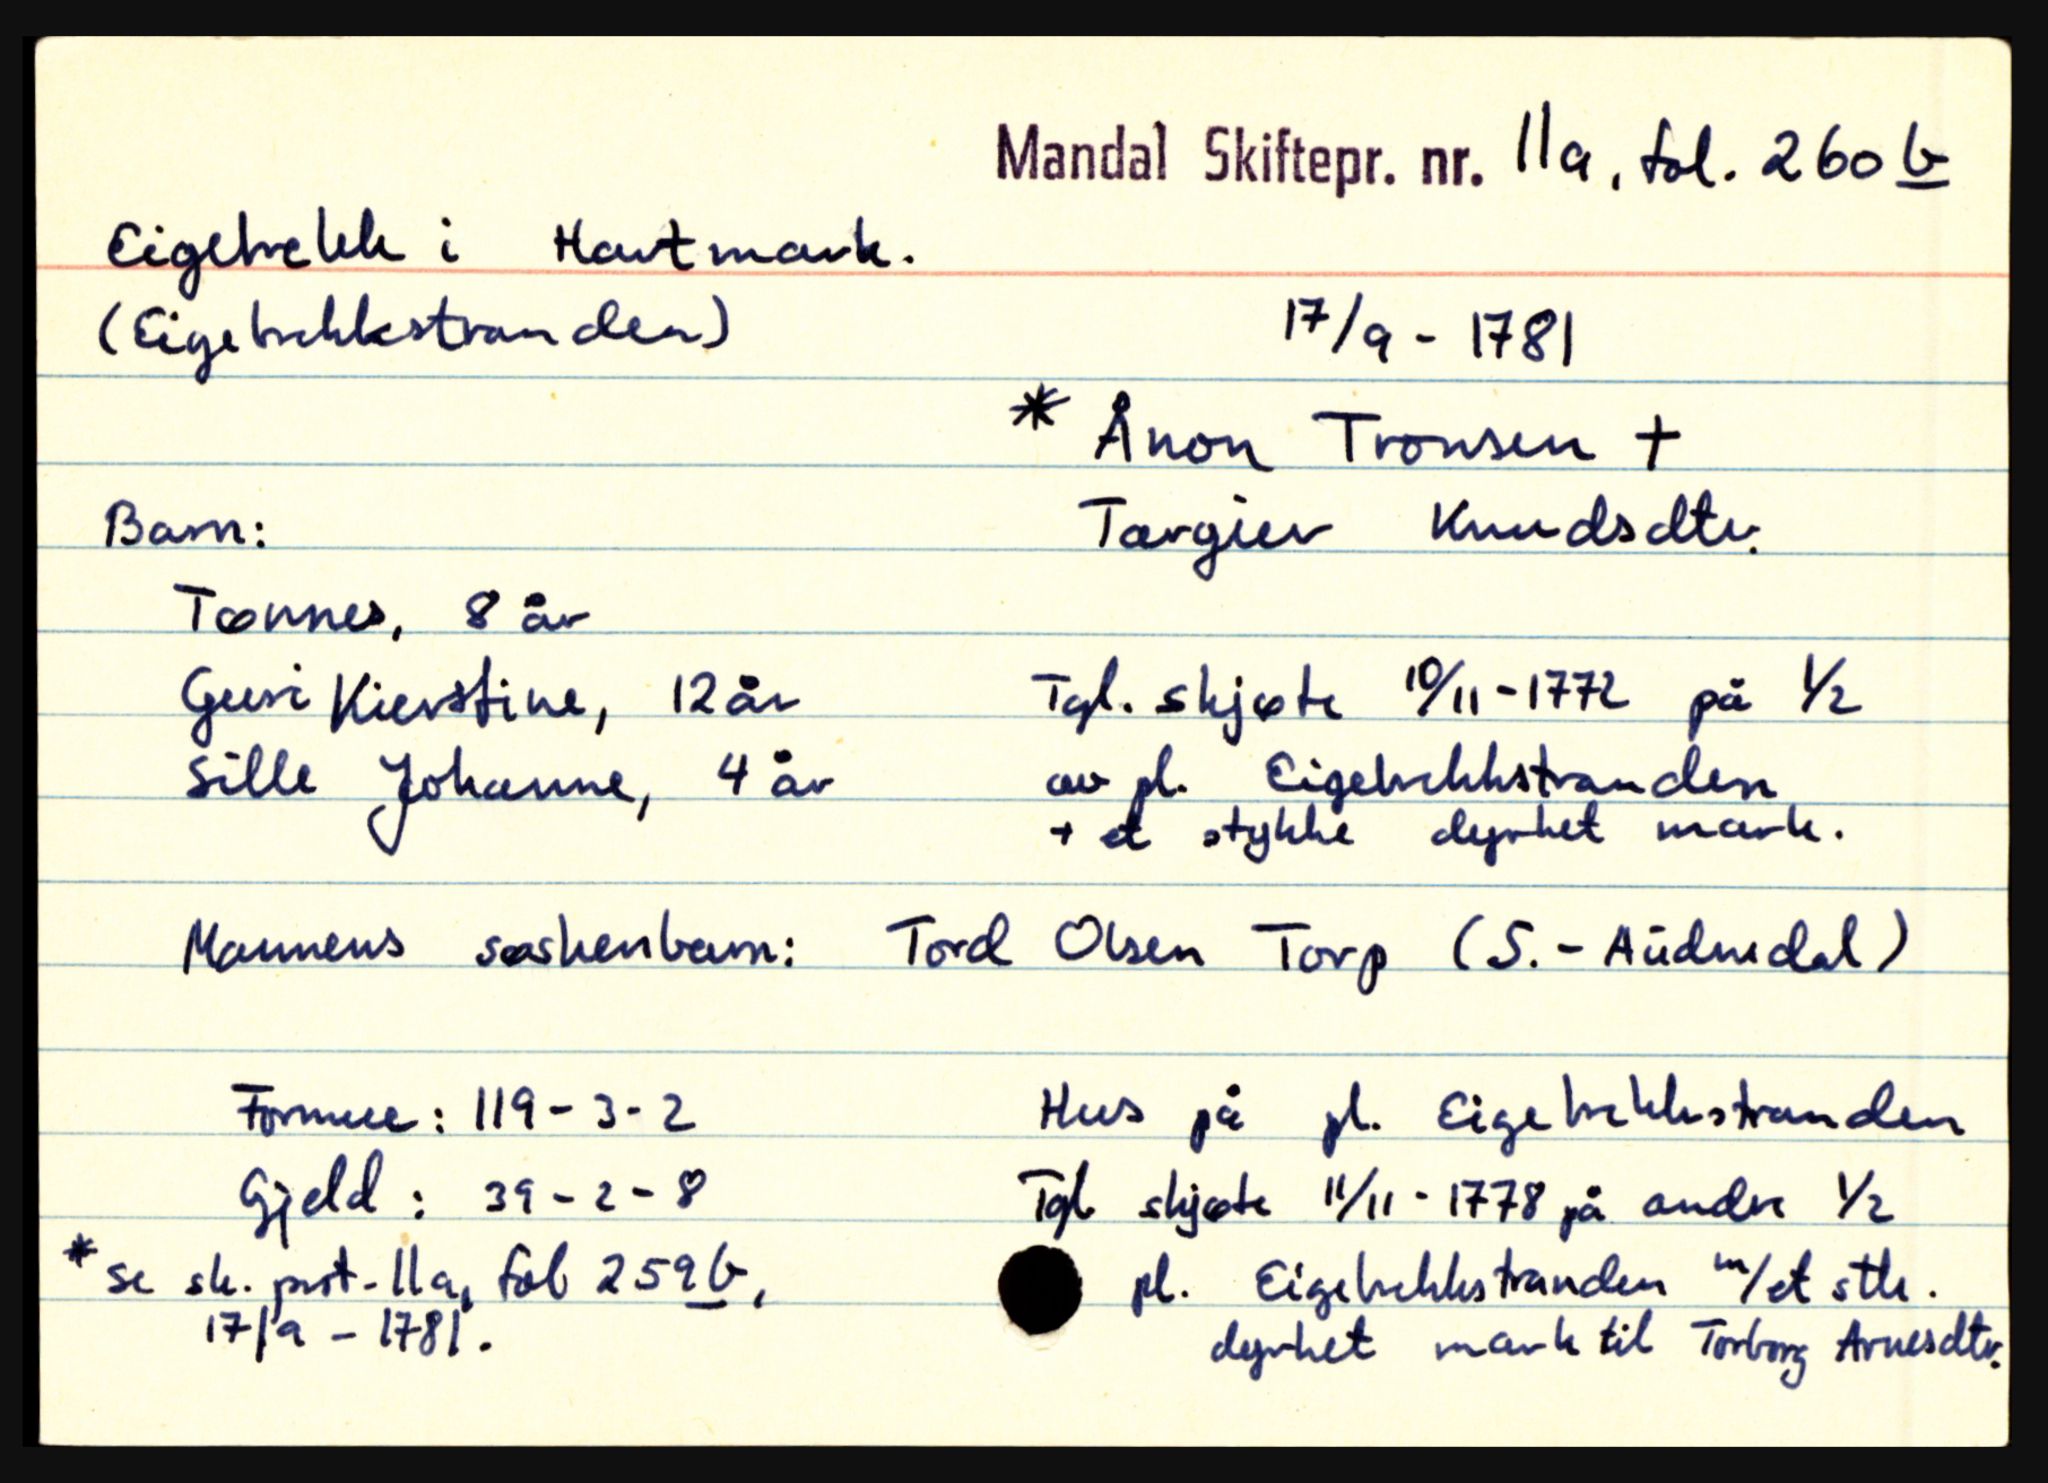 Mandal Skiftepr. nr. 11a, fol. 260 b
Eigebrekk i Hartmark.
(Eigebrekkstranden)
17/9 - 1781
* Ånon Tronsen +
Targier Knudsdtr.
Barn:
Tønnes, 8 år
Guri Kierstine, 12 år
Sille Johanne, 4 år
Tgl. skjøte 10/11 - 1772 på 1/2
av pl. Eigebrekkstranden
+ et stykke dyrket mark.
Mannens søskenbarn: Tord Olsen Torp (S. - Audnedal)
Formue: 119 - 3 - 2
Gjeld: 39 - 2 - 8
* se sk. prot. 11a, fol 259 b,
17/9 - 1781.
Hus på pl. Eigebrekkstranden
Tgl skjøte 11/11 - 1778 på andre 1/2
pl. Eigebrekkstranden m/et stk.
dyrket mark til Torborg Arnesdtr.